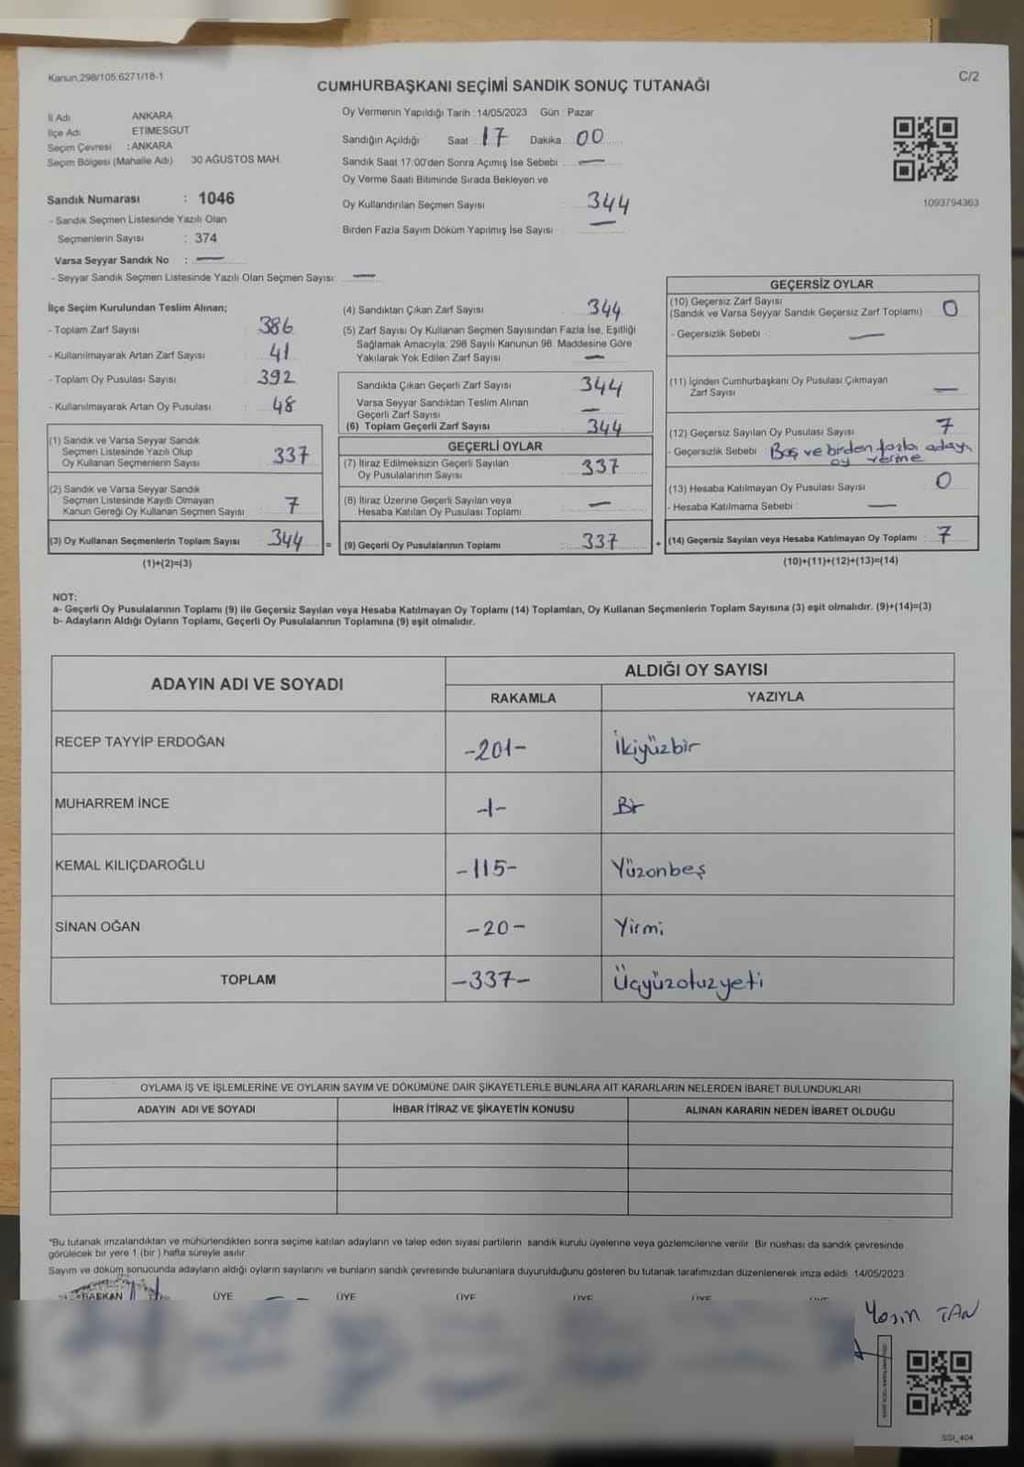 Kanun.298/105,6271/18-1
C/2
CUMHURBAŞKANI SEÇİMİ SANDIK SONUÇ TUTANAĞI
İl Adı ANKARA
İlçe Adı ETİMESGUT
Seçim Çevresi : ANKARA
Seçim Bölgesi (Mahalle Adı) 30 AĞUSTOS MAH.
Oy Vermenin Yapıldığı Tarih : 14/05/2023 Gün : Pazar
Sandığın Açıldığı Saat 17 Dakika 00
Sandık Saat 17:00'den Sonra Açımış İse Sebebi —
Oy Verme Saati Bitiminde Sırada Bekleyen ve
Oy Kullandırılan Seçmen Sayısı 344
Birden Fazla Sayım Döküm Yapılmış İse Sayısı —
1093794363
Sandık Numarası : 1046
- Sandık Seçmen Listesinde Yazılı Olan
Seçmenlerin Sayısı : 374
Varsa Seyyar Sandık No : —
- Seyyar Sandık Seçmen Listesinde Yazılı Olan Seçmen Sayısı: —
İlçe Seçim Kurulundan Teslim Alınan;
- Toplam Zarf Sayısı : 386
- Kullanılmayarak Artan Zarf Sayısı : 41
- Toplam Oy Pusulası Sayısı : 392
- Kullanılmayarak Artan Oy Pusulası : 48
(1) Sandık ve Varsa Seyyar Sandık
Seçmen Listesinde Yazılı Olup
Oy Kullanan Seçmenlerin Sayısı 337
(2) Sandık ve Varsa Seyyar Sandık
Seçmen Listesinde Kayıtlı Olmayan
Kanun Gereği Oy Kullanan Seçmen Sayısı 7
(3) Oy Kullanan Seçmenlerin Toplam Sayısı 344
(1)+(2)=(3)
(4) Sandıktan Çıkan Zarf Sayısı 344
(5) Zarf Sayısı Oy Kullanan Seçmen Sayısından Fazla İse, Eşitliği
Sağlamak Amacıyla; 298 Sayılı Kanunun 98. Maddesine Göre
Yakılarak Yok Edilen Zarf Sayısı —
Sandıkta Çıkan Geçerli Zarf Sayısı 344
Varsa Seyyar Sandıktan Teslim Alınan
Geçerli Zarf Sayısı —
(6) Toplam Geçerli Zarf Sayısı 344
GEÇERLİ OYLAR
(7) İtiraz Edilmeksizin Geçerli Sayılan
Oy Pusulalarının Sayısı 337
(8) İtiraz Üzerine Geçerli Sayılan veya
Hesaba Katılan Oy Pusulası Toplamı —
= (9) Geçerli Oy Pusulalarının Toplamı 337
GEÇERSİZ OYLAR
(10) Geçersiz Zarf Sayısı
(Sandık ve Varsa Seyyar Sandık Geçersiz Zarf Toplamı) 0
- Geçersizlik Sebebi : —
(11) İçinden Cumhurbaşkanı Oy Pusulası Çıkmayan
Zarf Sayısı —
(12) Geçersiz Sayılan Oy Pusulası Sayısı 7
- Geçersizlik Sebebi Boş ve birden fazla adaya
oy verme
(13) Hesaba Katılmayan Oy Pusulası Sayısı 0
- Hesaba Katılmama Sebebi : —
+ (14) Geçersiz Sayılan veya Hesaba Katılmayan Oy Toplamı : 7
(10)+(11)+(12)+(13)=(14)
NOT:
a- Geçerli Oy Pusulalarının Toplamı (9) ile Geçersiz Sayılan veya Hesaba Katılmayan Oy Toplamı (14) Toplamları, Oy Kullanan Seçmenlerin Toplam Sayısına (3) eşit olmalıdır. (9)+(14)=(3)
b- Adayların Aldığı Oyların Toplamı, Geçerli Oy Pusulalarının Toplamına (9) eşit olmalıdır.
ADAYIN ADI VE SOYADI
ALDIĞI OY SAYISI
RAKAMLA YAZIYLA
RECEP TAYYİP ERDOĞAN -201- İkiyüzbir
MUHARREM İNCE -1- Bir
KEMAL KILIÇDAROĞLU -115- Yüzonbeş
SİNAN OĞAN -20- Yirmi
TOPLAM -337- Üçyüzotuzyeti
OYLAMA İŞ VE İŞLEMLERİNE VE OYLARIN SAYIM VE DÖKÜMÜNE DAİR ŞİKAYETLERLE BUNLARA AİT KARARLARIN NELERDEN İBARET BULUNDUKLARI
ADAYIN ADI VE SOYADI İHBAR İTİRAZ VE ŞİKAYETİN KONUSU ALINAN KARARIN NEDEN İBARET OLDUĞU
*Bu tutanak imzalandıktan ve mühürlendikten sonra seçime katılan adayların ve talep eden siyasi partilerin sandık kurulu üyelerine veya gözlemcilerine verilir. Bir nüshası da sandık çevresinde
görülecek bir yere 1 (bir ) hafta süreyle asılır.
Sayım ve döküm sonucunda adayların aldığı oyların sayılarını ve bunların sandık çevresinde bulunanlara duyurulduğunu gösteren bu tutanak tarafımızdan düzenlenerek imza edildi. 14/05/2023
BAŞKAN ÜYE ÜYE ÜYE ÜYE ÜYE
Yasin TAN
SSI_404